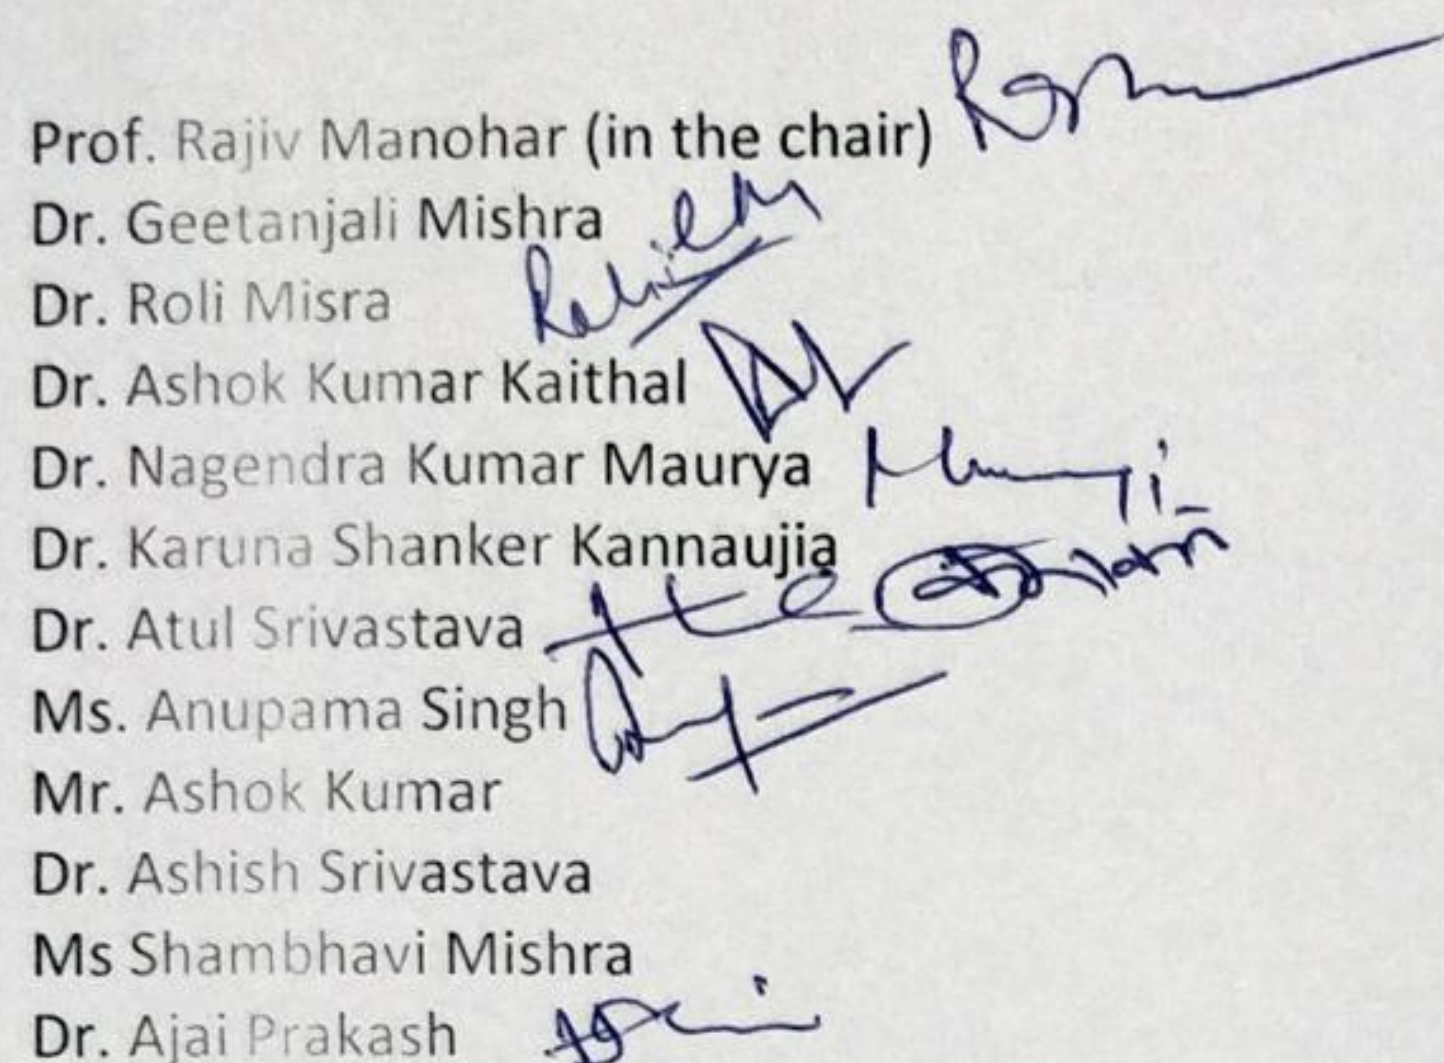 Prof. Rajiv Manohar (in the chair)
Dr. Geetanjali Mishra
Dr. Roli Misra
Dr. Ashok Kumar Kaithal
Dr. Nagendra Kumar Maurya
Dr. Karuna Shanker Kannaujia
Dr. Atul Srivastava
Ms. Anupama Singh
Mr. Ashok Kumar
Dr. Ashish Srivastava
Ms Shambhavi Mishra
Dr. Ajai Prakash